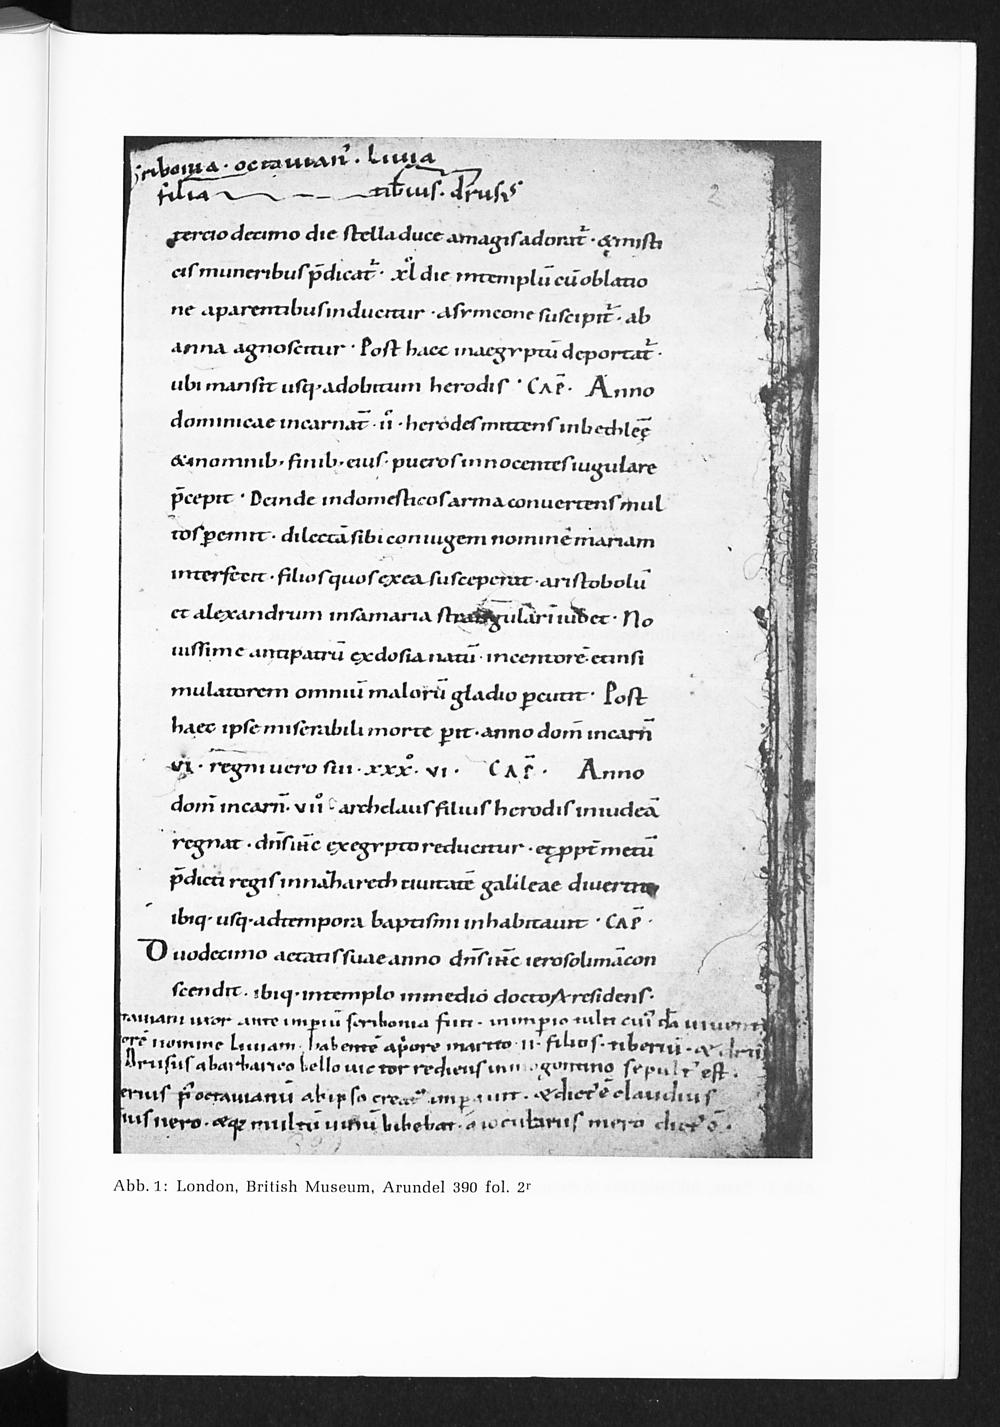 scribonia · octauian᷑ · liuia
filia tib̅ius · drusus
2
tercio decimo die stella duce amagis adorat᷑ · & misti
cis muneribus p̅dicat᷑ · xl die intemplū cū oblatio
ne aparentibus inducitur · asymeone suscipit᷑ · ab
anna agnoscitur · Post haec inaegyptū deportat᷑ ·
ubi mansit usq· adobitum herodis · CAP̅ · Anno
dominicae incarnat̅ · ii° · herodes mittens inbethleē
& inomnib· finib· eius · pueros innocentes iugulare
p̅cepit · Deinde indomesticos arma conuertens mul
tos ꝑemit · dilectā sibi coniugem nomine mariam
interfecit · filios quos exea susceperat · aristobolū
et alexandrum insamaria strangulari iubet · No
uissime antipatrū exdosia natū · incentorē et insi
mulatorem omniū malorū gladio ꝑcutit · Post
haec ipse miserabili morte ꝑit · anno dom̅ incarn̅
vi · regni uero sui · xxx° · vi · CAP̅ · Anno
dom̅ incarn̅ · vii° archelaus filius herodis iniudeā
regnat · dn̅s ih̅c exegypto reducitur · et ꝓpt̅ metū
p̅dicti regis innazareth ciuitatē galileae diuertit
ibiq· usq· adtempora baptismi inhabitauit · CAP̅ ·
Duodecimo aetatis suae anno dn̅s ih̅c ierosolimā con
scendit · ibiq· intemplo inmedio doctoꝝ residens ·
tauiani uxor ante imperiū scribonia fuit · inimperio tulit
nomine liuiam · habentē apriore marito · ii · filios · tiberiū · &
Drusus abarbarico bello uictor rediens sepult᷑ est ·
erius p̅ octauianū abipso · & dict᷑ ē claudius
ius nero · multū uinū bibebat · mero dict᷑ ē ·
Abb. 1: London, British Museum, Arundel 390 fol. 2ʳ